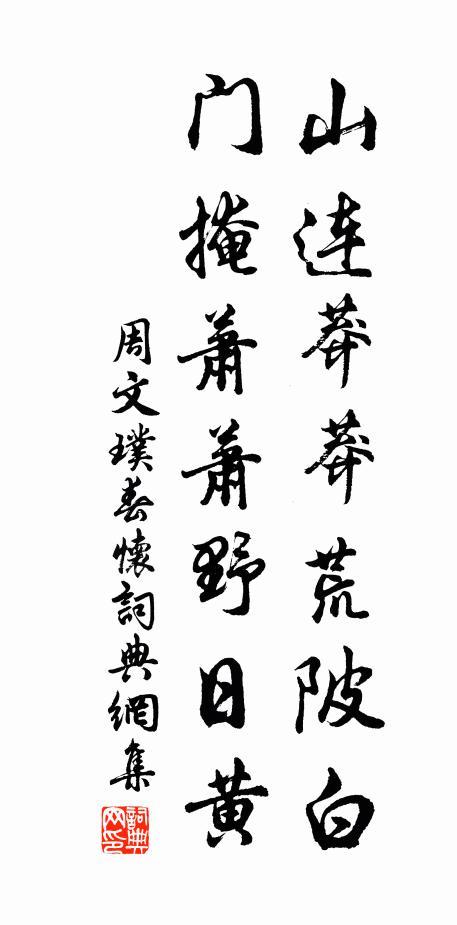 山连莽莽荒陂白
门掩萧萧野日黄
周文璞春懷詞典網集
詞典网印